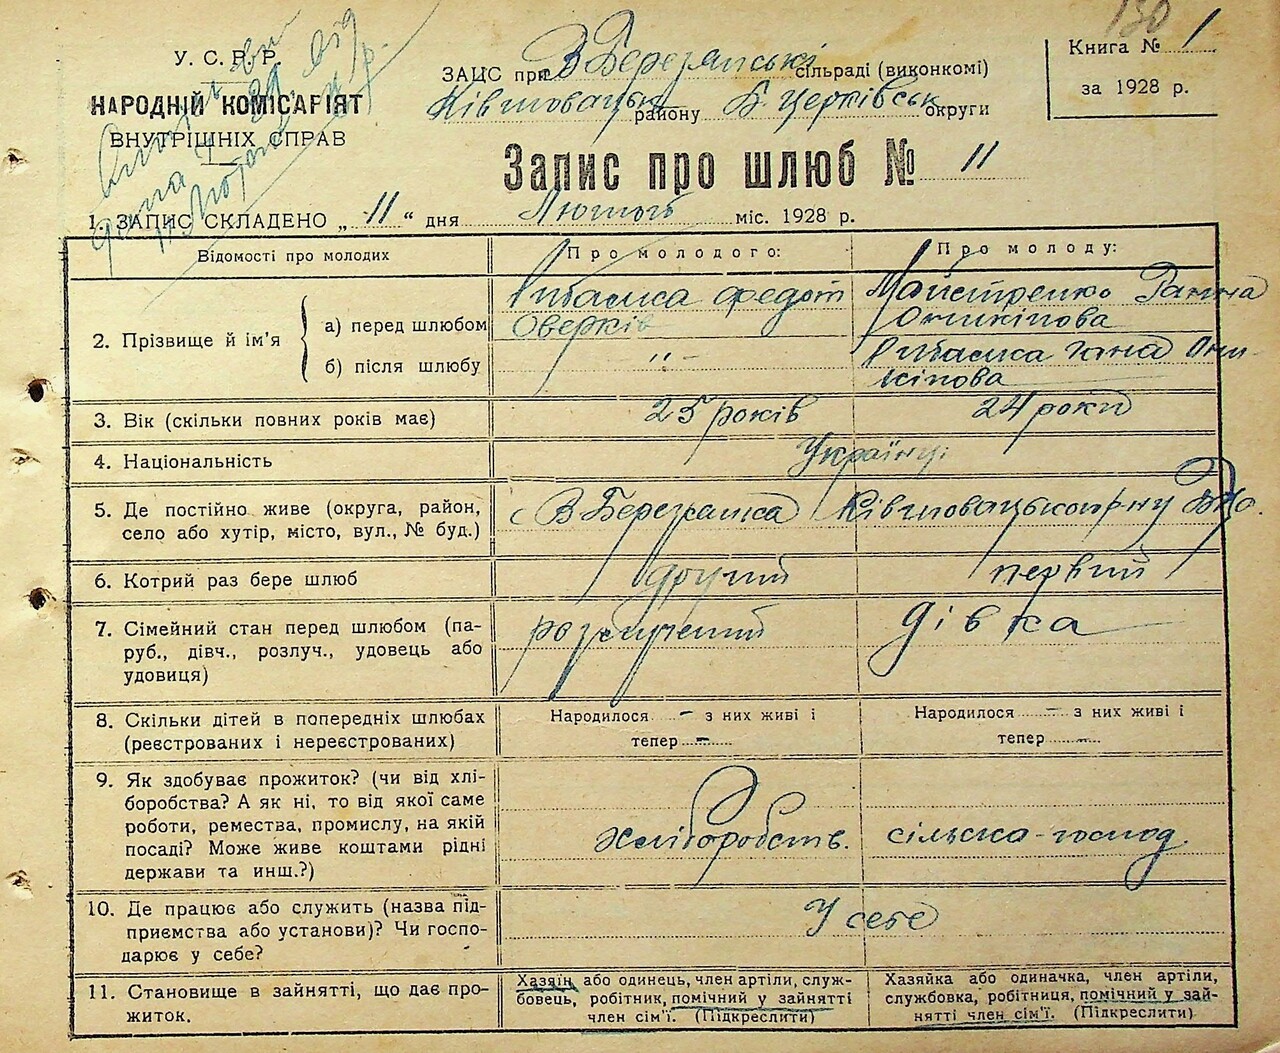 130
У. С. Р. Р.
НАРОДНІЙ КОМІСАРІЯТ
ВНУТРІШНІХ СПРАВ
ЗАЦС при В Березанські сільраді (виконкомі)
Ківшоватськ району Б. Церківськ округи
Книга № 1
за 1928 р.
Запис про шлюб № 11
1. ЗАПИС СКЛАДЕНО „ 11 “ дня Лютого міс. 1928 р.
Відомості про молодих
Про молодого:
Про молоду:
2. Прізвище й ім'я
а) перед шлюбом
б) після шлюбу
Федот
Оверків
" -
Майстренко Ганна
Оникіпова
Гана Они-
кіпова
3. Вік (скільки повних років має)
25 років
24 роки
4. Національність
Українці
5. Де постійно живе (округа, район,
село або хутір, місто, вул., № буд.)
с В Березанка Ківшоватського р-ну
6. Котрий раз бере шлюб
другий
первий
7. Сімейний стан перед шлюбом (па-
руб., дівч., розлуч., удовець або
удовиця)
розлучений
дівка
8. Скільки дітей в попередніх шлюбах
(реєстрованих і нереєстрованих)
Народилося – з них живі і
тепер –
Народилося – з них живі і
тепер –
9. Як здобуває прожиток? (чи від хлі-
боробства? А як ні, то від якої саме
роботи, ремества, промислу, на якій
посаді? Може живе коштами рідні
держави та инш.?)
хліборобств.
сільско-господ
10. Де працює або служить (назва під-
приємства або установи)? Чи госпо-
дарює у себе?
У себе
11. Становище в зайнятті, що дає про-
житок.
Хазяїн або одинець, член артіли, служ-
бовець, робітник, помічний у зайнятті
член сім'ї. (Підкреслити)
Хазяйка або одиначка, член артіли,
службовка, робітниця, помічний у зай-
нятті член сім'ї. (Підкреслити)